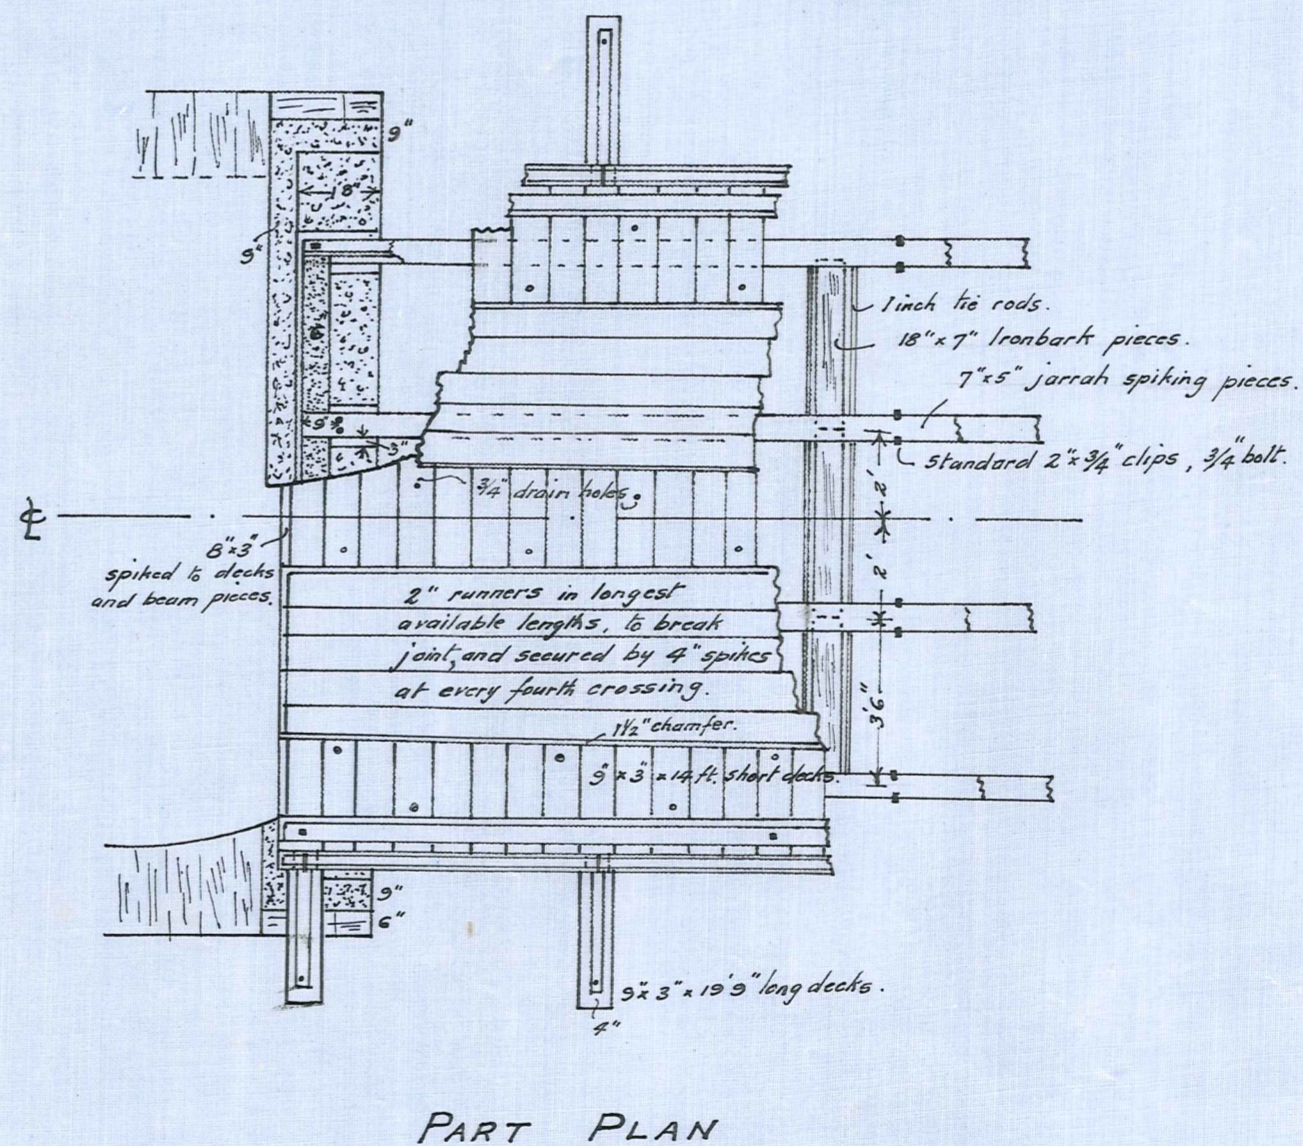 9"
18"
9"
1 inch tie rods.
18" x 7" Ironbark pieces.
7" x 5" jarrah spiking pieces.
9"
3"
standard 2" x 3/4" clips, 3/4" bolt.
3/4" drain holes
2'
℄
8" x 3"
spiked to decks
and beam pieces.
2'
2" runners in longest
available lengths, to break
joint, and secured by 4" spikes
at every fourth crossing.
3'6"
1 1/2" chamfer.
9" x 3" x 14 ft. short decks.
9"
6"
9" x 3" x 19'9" long decks.
4"
PART PLAN